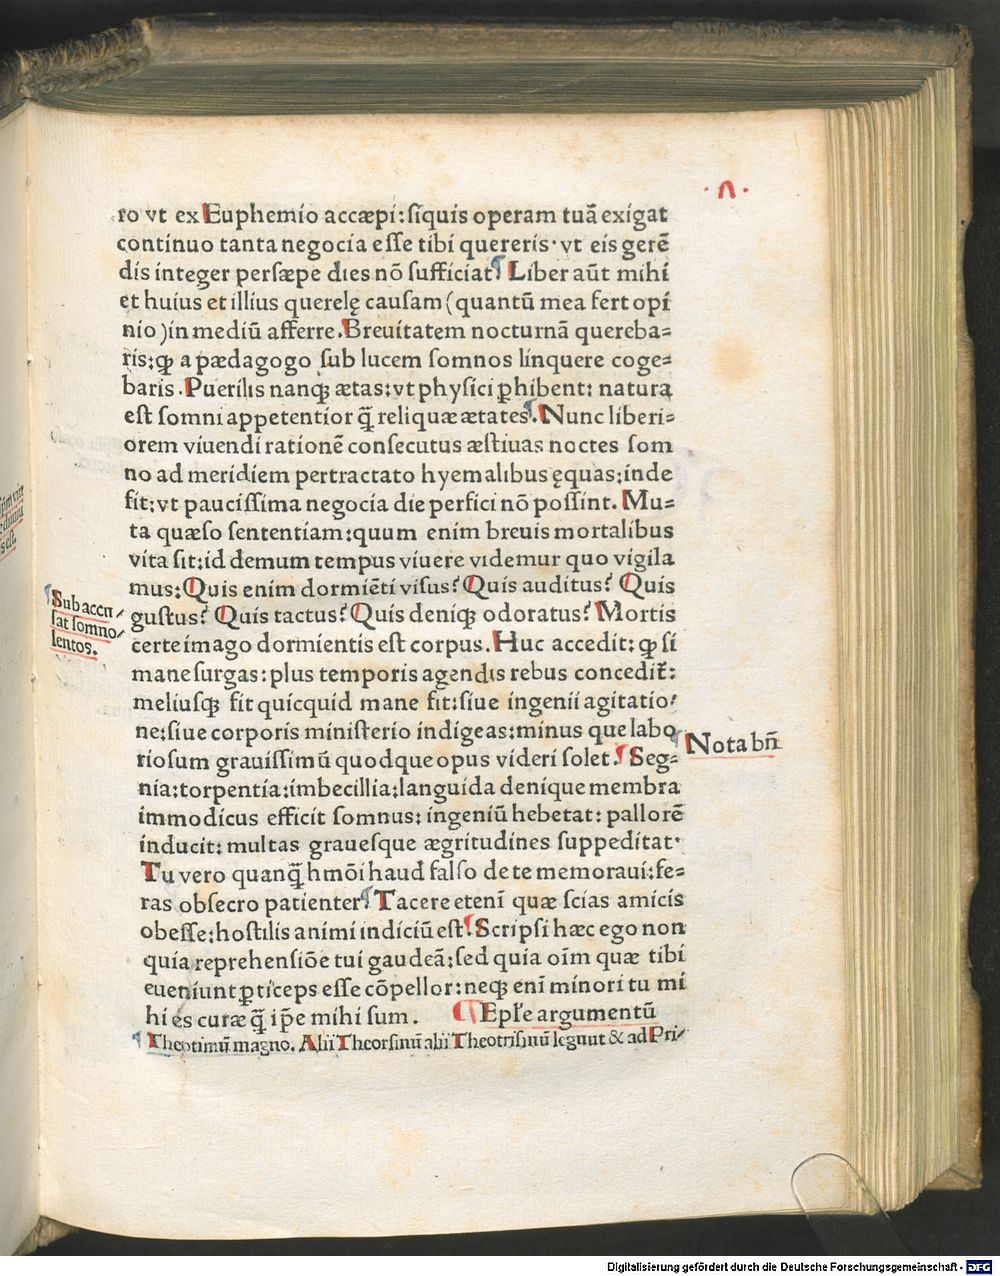 ·Λ·
ro vt ex Euphemio accæpi: siquis operam tuā exigat
continuo tanta negocia esse tibi quereris· vt eis gerē
dis integer persæpe dies nō sufficiat¶ Liber aūt mihi
et huius et illius querelę causam (quantū mea fert opi
nio) in mediū afferre. Breuitatem nocturnā quereba⸗
ris: ꝙ a pædagogo sub lucem somnos linquere coge⸗
baris. Puerilis nanqꝫ ætas: vt physici ꝑhibent: natura
est somni appetentior q̄ reliquæ ætates¶. Nunc liberi⸗
orem viuendi rationē consecutus æstiuas noctes som
no ad meridiem pertractato hyemalibus ęquas: inde
fit: vt paucissima negocia die perfici nō possint. Mu⸗
ta quæso sententiam: quum enim breuis mortalibus
vita sit: id demum tempus viuere videmur quo vigila
mus: Quis enim dormiēti visus? Quis auditus? Quis
gustus? Quis tactus? Quis deniqꝫ odoratus? Mortis
certe imago dormientis est corpus. Huc accedit: ꝙ si
mane surgas: plus temporis agendis rebus concedit̄:
meliusqꝫ fit quicquid mane fit: siue ingenii agitatio/
ne: siue corporis ministerio indigeas: minus que labo
riosum grauissimū quodque opus videri solet.¶ Seg⸗
nia: torpentia: imbecillia: languida denique membra
immodicus efficit somnus: ingeniū hebetat: pallorē
inducit: multas grauesque ægritudines suppeditat·
Tu vero quanq̄ hmōi haud falso de te memoraui: fe⸗
ras obsecro patienter¶ Tacere eteni quæ scias amicis
obesse: hostilis animi indiciū est¶. Scripsi hæc ego non
quia reprehensiōe tui gaudeā: sed quia oīm quæ tibi
eueniunt ꝑticeps esse cōpellor: neqꝫ eni minori tu mi
hi es curæ q̄ ip̄e mihi sum. ¶ Epl̄e argumentū
¶ Theotimū magno. Alii Theorsinū alii Theotrisinū legunt & ad Pri/
¶ Sub accu/
sat somno/
lentos.
¶ Nota bn̄
Digitalisierung gefördert durch die Deutsche Forschungsgemeinschaft - DFG